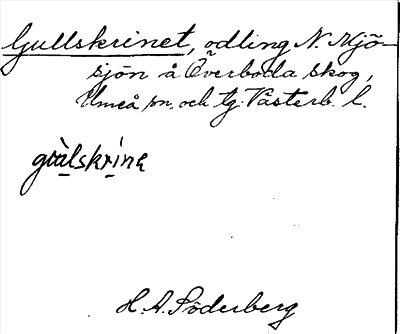 Gullskrinet, odling N. Mjö-
sjön å Överboda skog,
Umeå sn. och tg. Västerb. l.
gùlskrínę
H. A. Söderberg